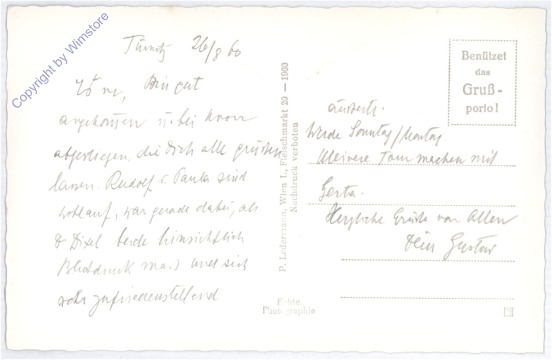 Copyright by Wimstore
Türnitz 26/8 60
Bin gut
angekommen u. bei
abgestiegen, die Dich alle grüßen
lassen. Rudolf u. Paula sind
wohlauf, war gerade dabei, als
beide hinsichtlich
Blutdruck und sich
sehr zufriedenstellend
P. Ledermann, Wien I., Fleischmarkt 20 — 1960
Nachdruck verboten
Echte
Photographie
Benützet
das
Gruß-
porto!
äußerte.
Werde Sonntag/Montag
kleinere Tour machen mit
Gerta.
Herzliche Grüße von Allen
Dein Gustav